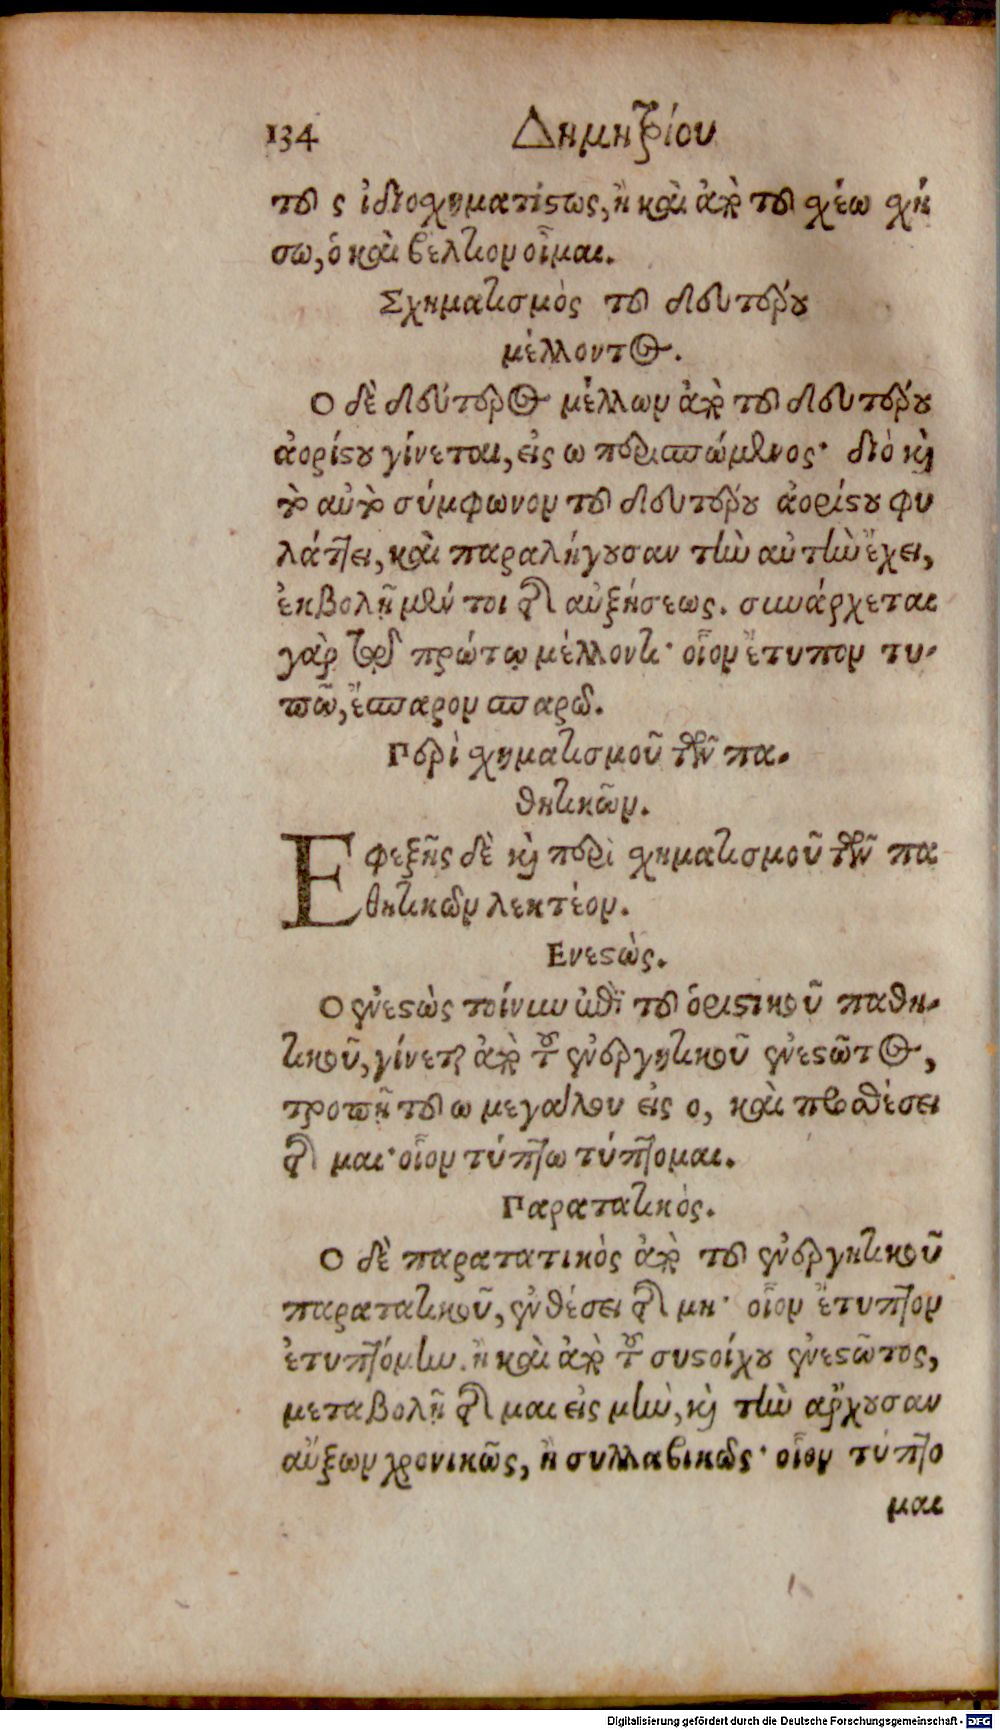 134 Δημητρίου
τοῦ ς ἰδιοσχηματίστως, ἢ καὶ ἀπὸ τοῦ σχέω σχή
σω, ὁ καὶ βέλτιον οἶμαι.
Σχηματισμὸς τοῦ δευτέρου
μέλλοντος.
Ο δὲ δεύτερος μέλλων ἀπὸ τοῦ δευτέρου
ἀορίστου γίνεται, εἰς ω περισπώμενος· διὸ καὶ
τὸ αὐτὸ σύμφωνον τοῦ δευτέρου ἀορίστου φυ
λάττει, καὶ παραλήγουσαν τὴν αὐτὴν ἔχει,
ἐκβολῇ μέν τοι τῆς αὐξήσεως. συνάρχεται
γὰρ τῷ πρώτῳ μέλλοντι· οἷον ἔτυπον τυ-
πῶ, ἔσπαρον σπαρῶ.
Περὶ σχηματισμοῦ τῶν πα-
θητικῶν.
Εφεξῆς δὲ καὶ περὶ σχηματισμοῦ τῶν πα
θητικῶν λεκτέον.
Ενεστὼς.
Ο ἐνεστὼς τοίνυν ἐπὶ τοῦ ὁριστικοῦ παθη-
τικοῦ, γίνεται ἀπὸ τοῦ ἐνεργητικοῦ ἐνεστῶτος,
τροπῇ τοῦ ω μεγάλου εἰς ο, καὶ προσθέσει
τῆς μαι· οἷον τύπτω τύπτομαι.
Παρατατικὸς.
Ο δὲ παρατατικὸς ἀπὸ τοῦ ἐνεργητικοῦ
παρατατικοῦ, ἐνθέσει τῆς μη· οἷον ἔτυπτον
ἐτυπτόμην. ἢ καὶ ἀπὸ τοῦ συστοίχου ἐνεστῶτος,
μεταβολῇ τῆς μαι εἰς μὴν, καὶ τὴν ἄρχουσαν
αὔξων χρονικῶς, ἢ συλλαβικῶς· οἷον τύπτο
μαι
Digitalisierung gefördert durch die Deutsche Forschungsgemeinschaft - DFG